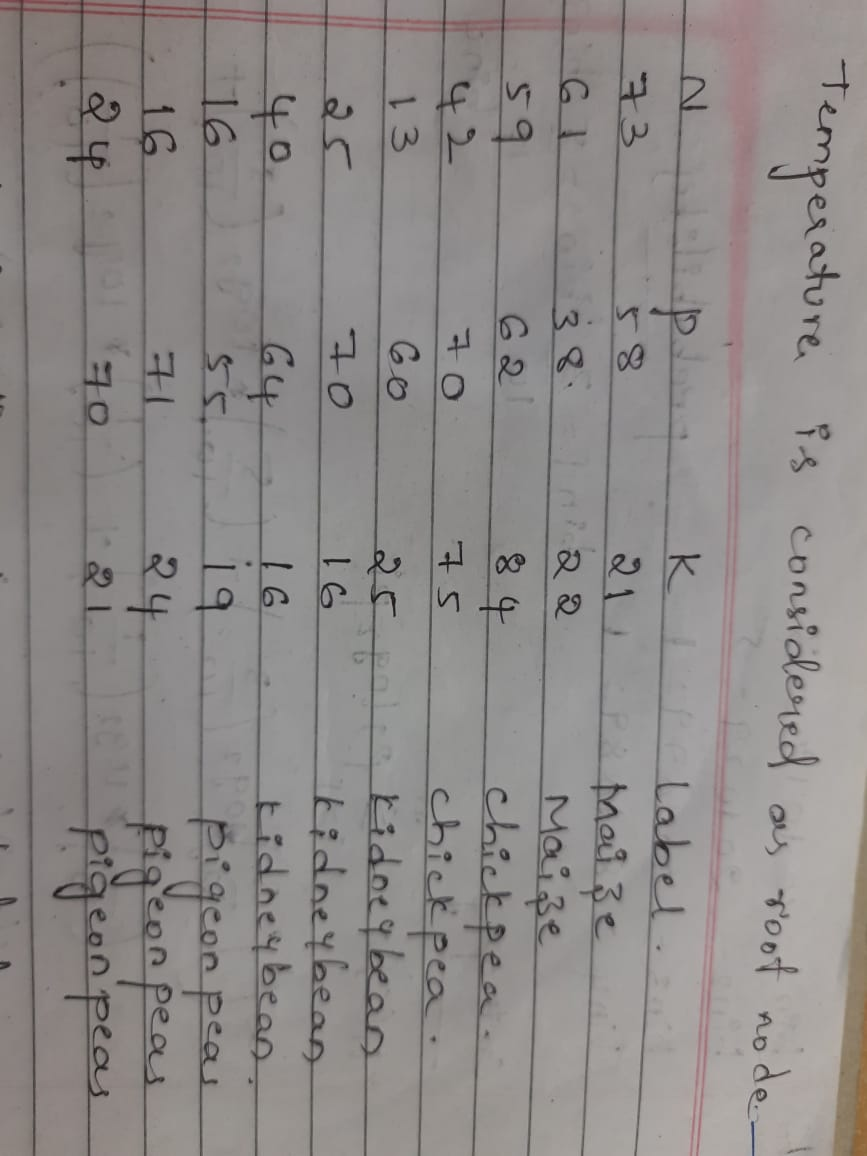 Temperature is considered as root node.
N P K label.
73 58 21 Maize
61 38 22 Maize
59 62 84 chickpea.
42 70 75 chickpea.
13 60 25 kidneybean
25 70 16 kidneybean
40 64 16 kidneybean.
16 55 19 pigeonpeas
16 71 24 pigeonpeas
24 70 21 pigeonpeas